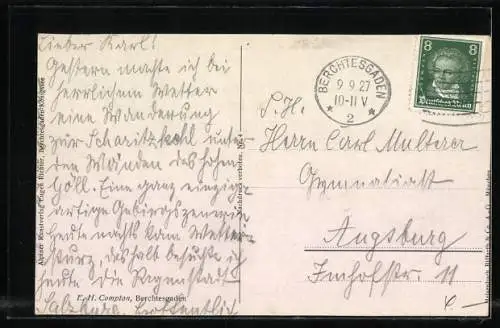 Lieber Karl!
Gestern machte ich bei
herrlichem Wetter
eine Wanderung
zur Scharitzkehl unter
den Wänden des hohen
Göll. Eine ganz einzig
artige Gebirgsszenerie
Heute nachts kam Wetter-
sturz, deshalb besuchte ich
heute die Regenstadt
Salzburg. Hoffentlich
E. H. Compton, Berchtesgaden
Nachdruck verboten.
BERCHTESGADEN
9 9 27
10-11 V
* 2 *
8 8
Deutsches Reich
S. H.
Herrn Carl Multerer
Gymnasiast
Augsburg
Imhofstr. 11